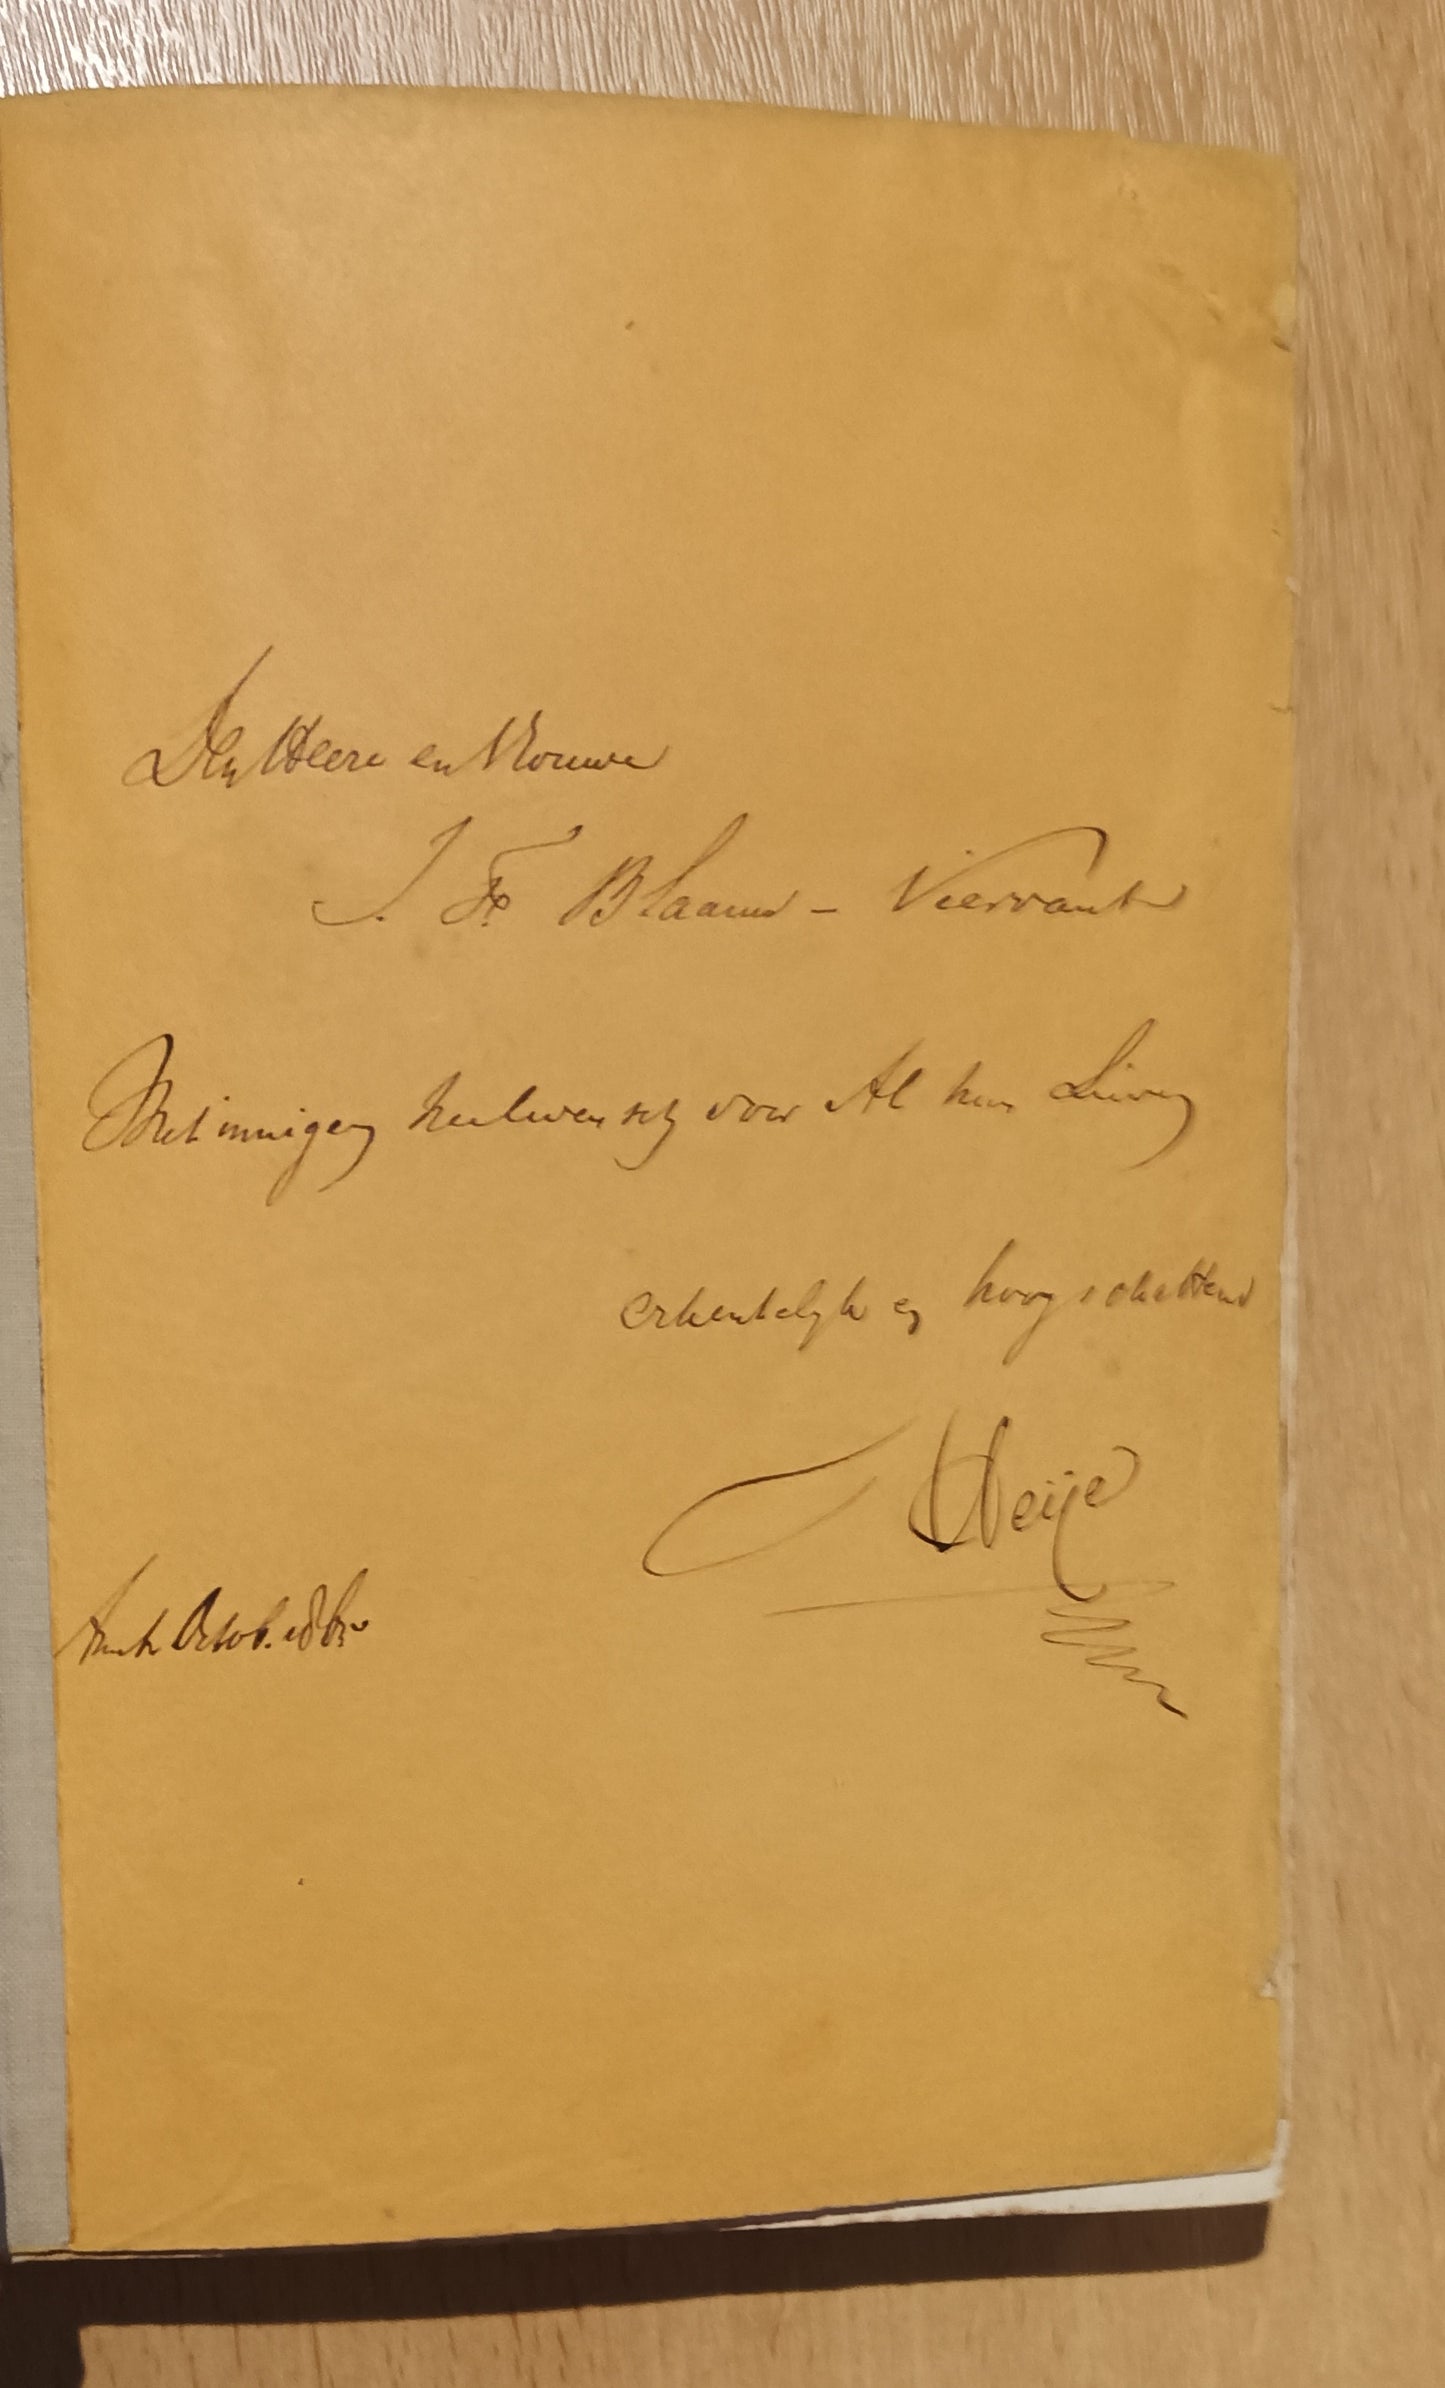 Den Heere en Vrouwe
J. F. Blaauw - Viervant
Met innigen heilwensch voor Al hun Lieven
erkentelyk en hoogschattend
Heije
Amst. Octob. 186